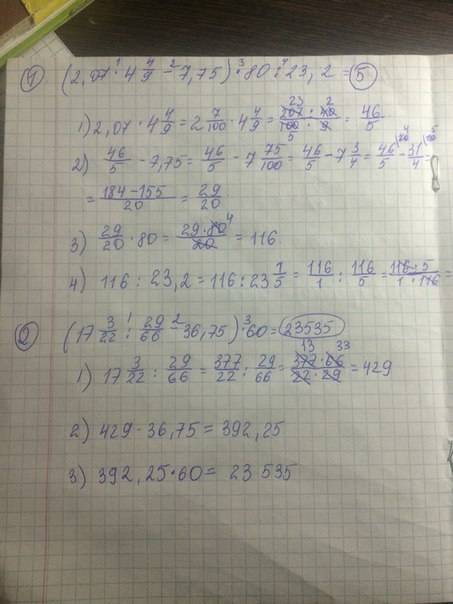 ① (2,07 · 4 4/9 - 7,75) · 80 : 23,2 = 5
1) 2,07 · 4 4/9 = 2 7/100 · 4 4/9 = 207 · 40 / 100 · 9 = 46/5
2) 46/5 - 7,75 = 46/5 - 7 75/100 = 46/5 - 7 3/4 = 46/5 - 31/4 =
= 184 - 155 / 20 = 29/20
3) 29/20 · 80 = 29 · 80 / 20 = 116
4) 116 : 23,2 = 116 : 23 1/5 = 116/1 : 116/5 = 116 · 5 / 1 · 116 =
② (17 3/22 : 29/66 - 36,75) · 60 = 23535
1) 17 3/22 : 29/66 = 377/22 : 29/66 = 377 · 66 / 22 · 29 = 429
2) 429 - 36,75 = 392,25
3) 392,25 · 60 = 23 535